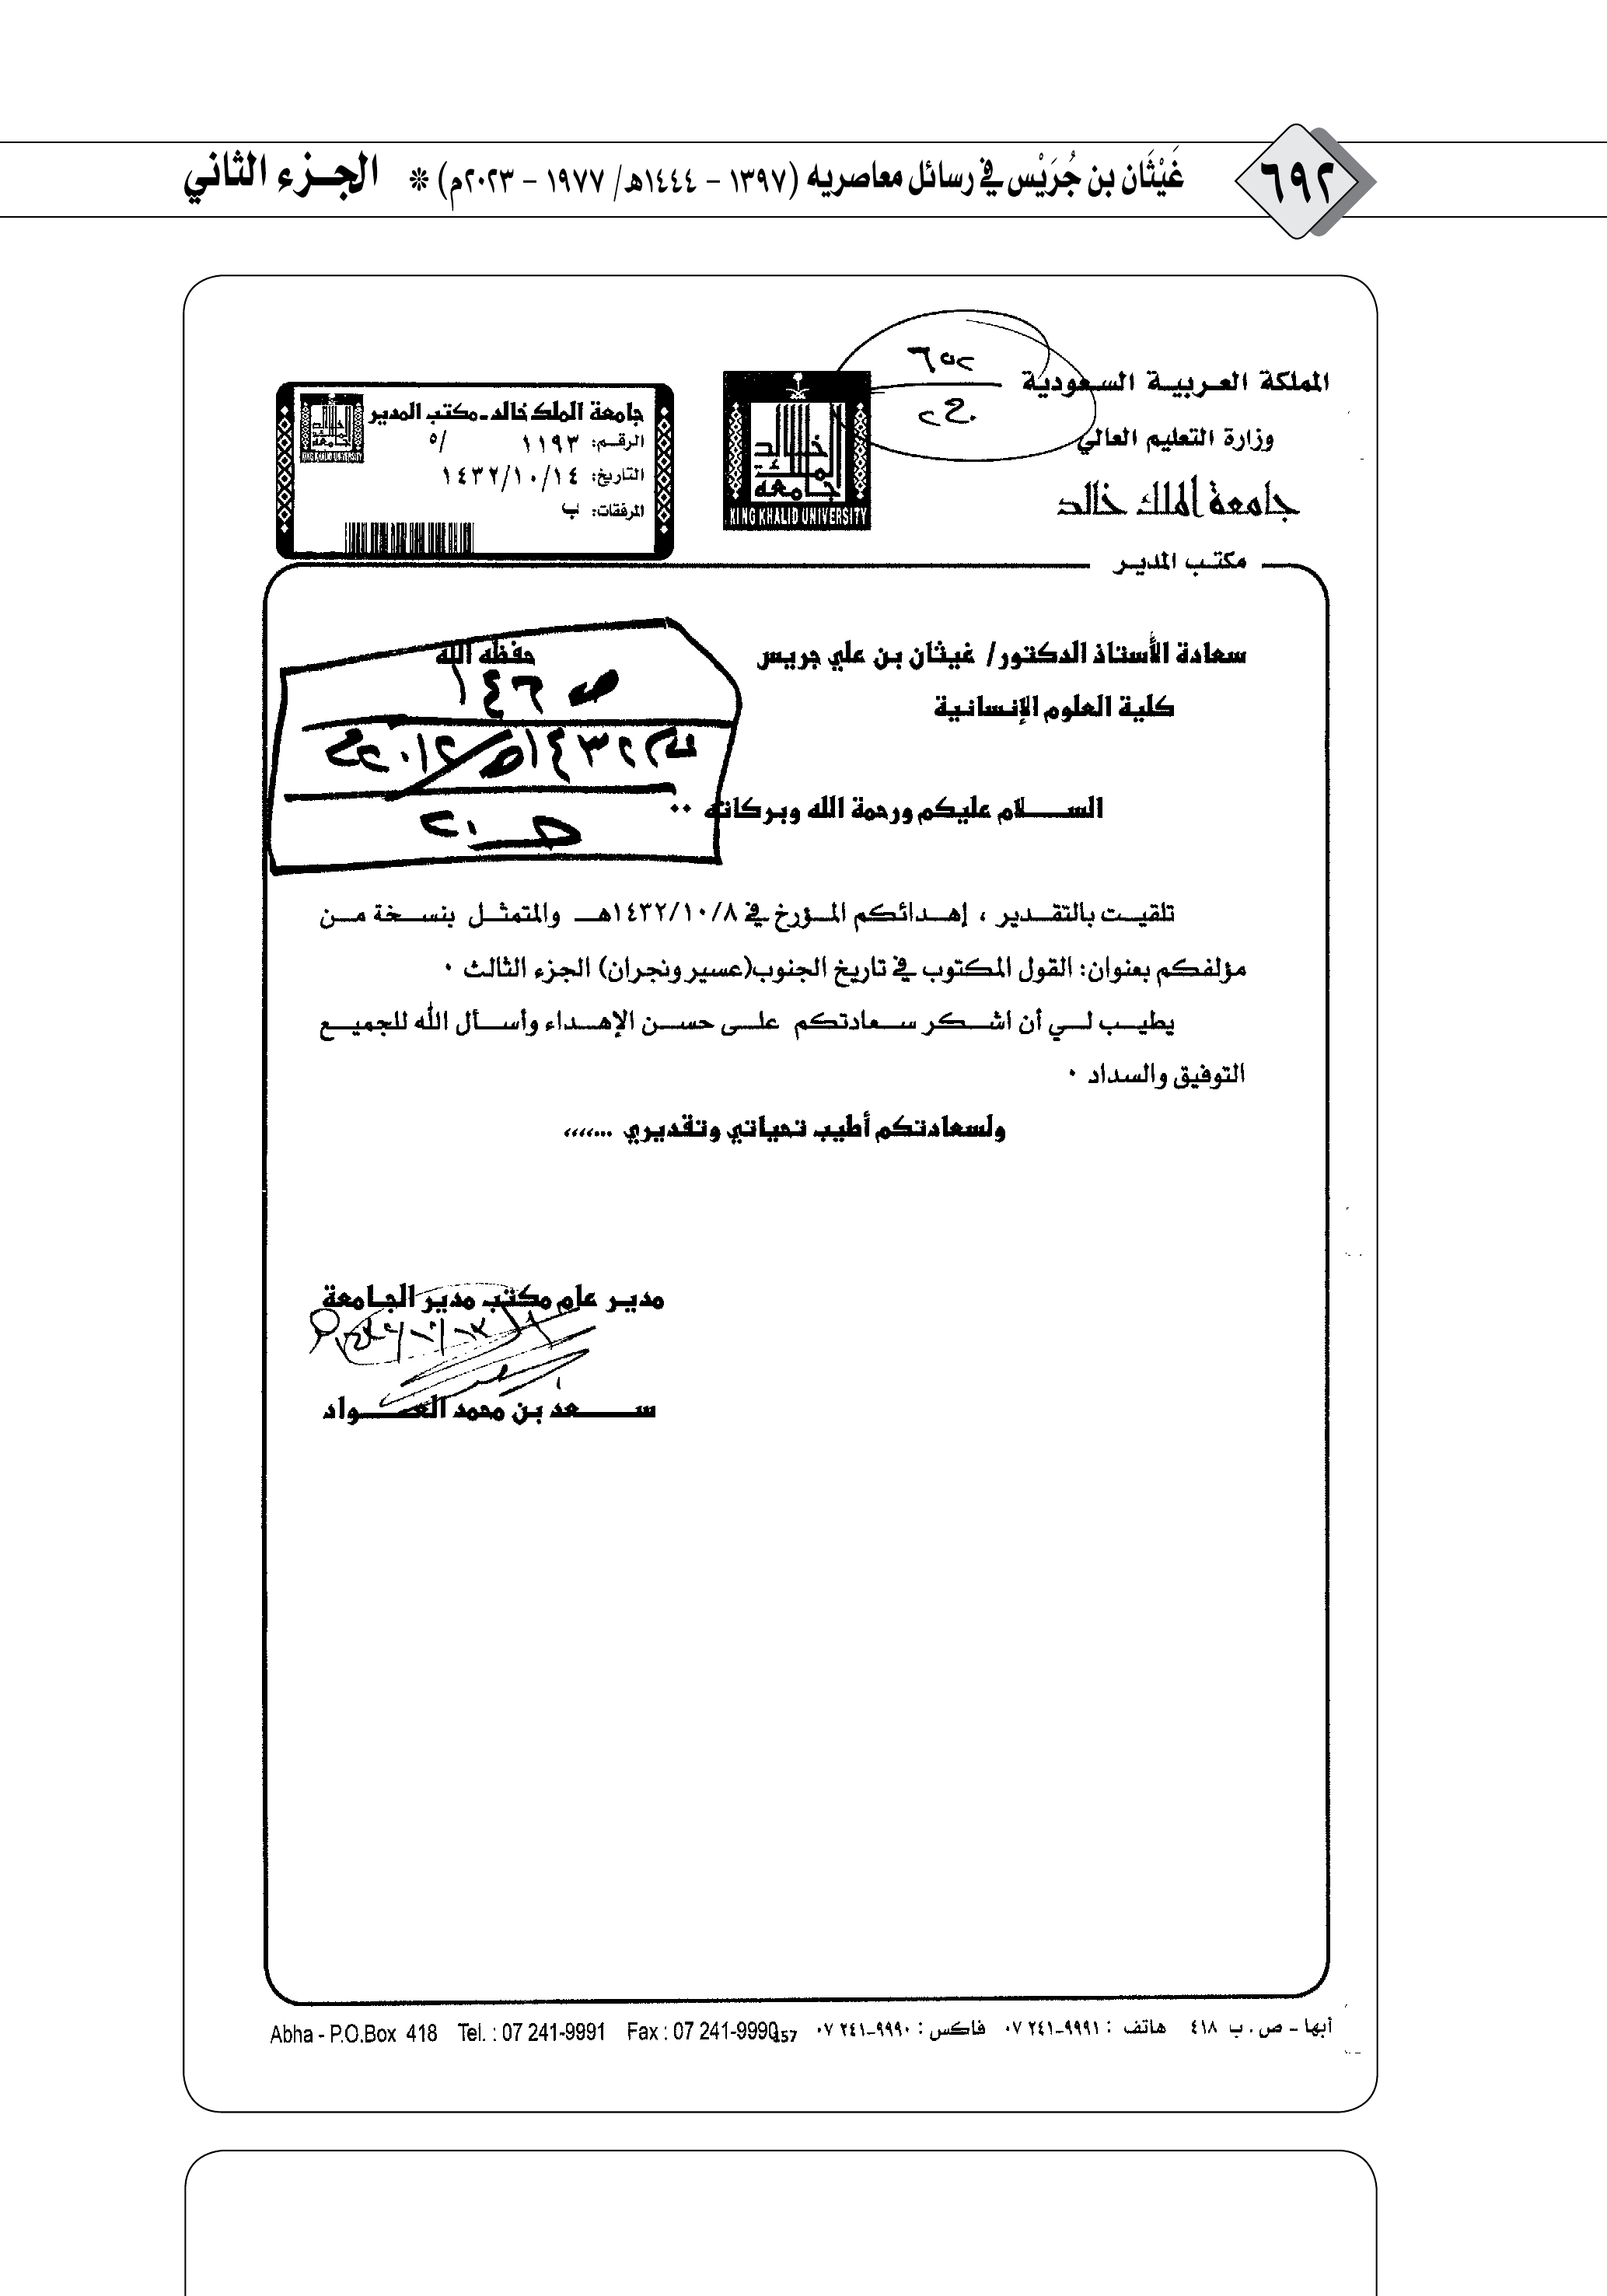 ٦٩٢
غَيْثَان بن جُرَيْس في رسائل معاصريه (١٣٩٧ - ١٤٤٤هـ/ ١٩٧٧ - ٢٠٢٣م) * الجزء الثاني
المملكة العربية السعودية
وزارة التعليم العالي
جامعة الملك خالد
مكتب المدير
جامعة الملك خالد
KING KHALID UNIVERSITY
جامعة الملك خالد - مكتب المدير
الرقم: ١١٩٣ /٥
التاريخ: ١٤٣٢/١٠/١٤
المرفقات: ب
سعادة الأستاذ الدكتور/ غيثان بن علي جريس حفظه الله
كلية العلوم الإنسانية
ص ١٤٦
السلام عليكم ورحمة الله وبركاته ..
تلقيت بالتقدير ، إهدائكم المؤرخ في ١٤٣٢/١٠/٨هـ والمتمثل بنسخة من
مؤلفكم بعنوان: القول المكتوب في تاريخ الجنوب(عسير ونجران) الجزء الثالث .
يطيب لي أن اشكر سعادتكم على حسن الإهداء وأسأل الله للجميع
التوفيق والسداد .
ولسعادتكم أطيب تحياتي وتقديري ...,,,,
مدير عام مكتب مدير الجامعة
سعد بن محمد العواد
أبها - ص . ب ٤١٨ هاتف : ٩٩٩١-٢٤١ ٠٧ فاكس : ٩٩٩٠-٢٤١ ٠٧
157
Abha - P.O.Box 418 Tel. : 07 241-9991 Fax : 07 241-9990